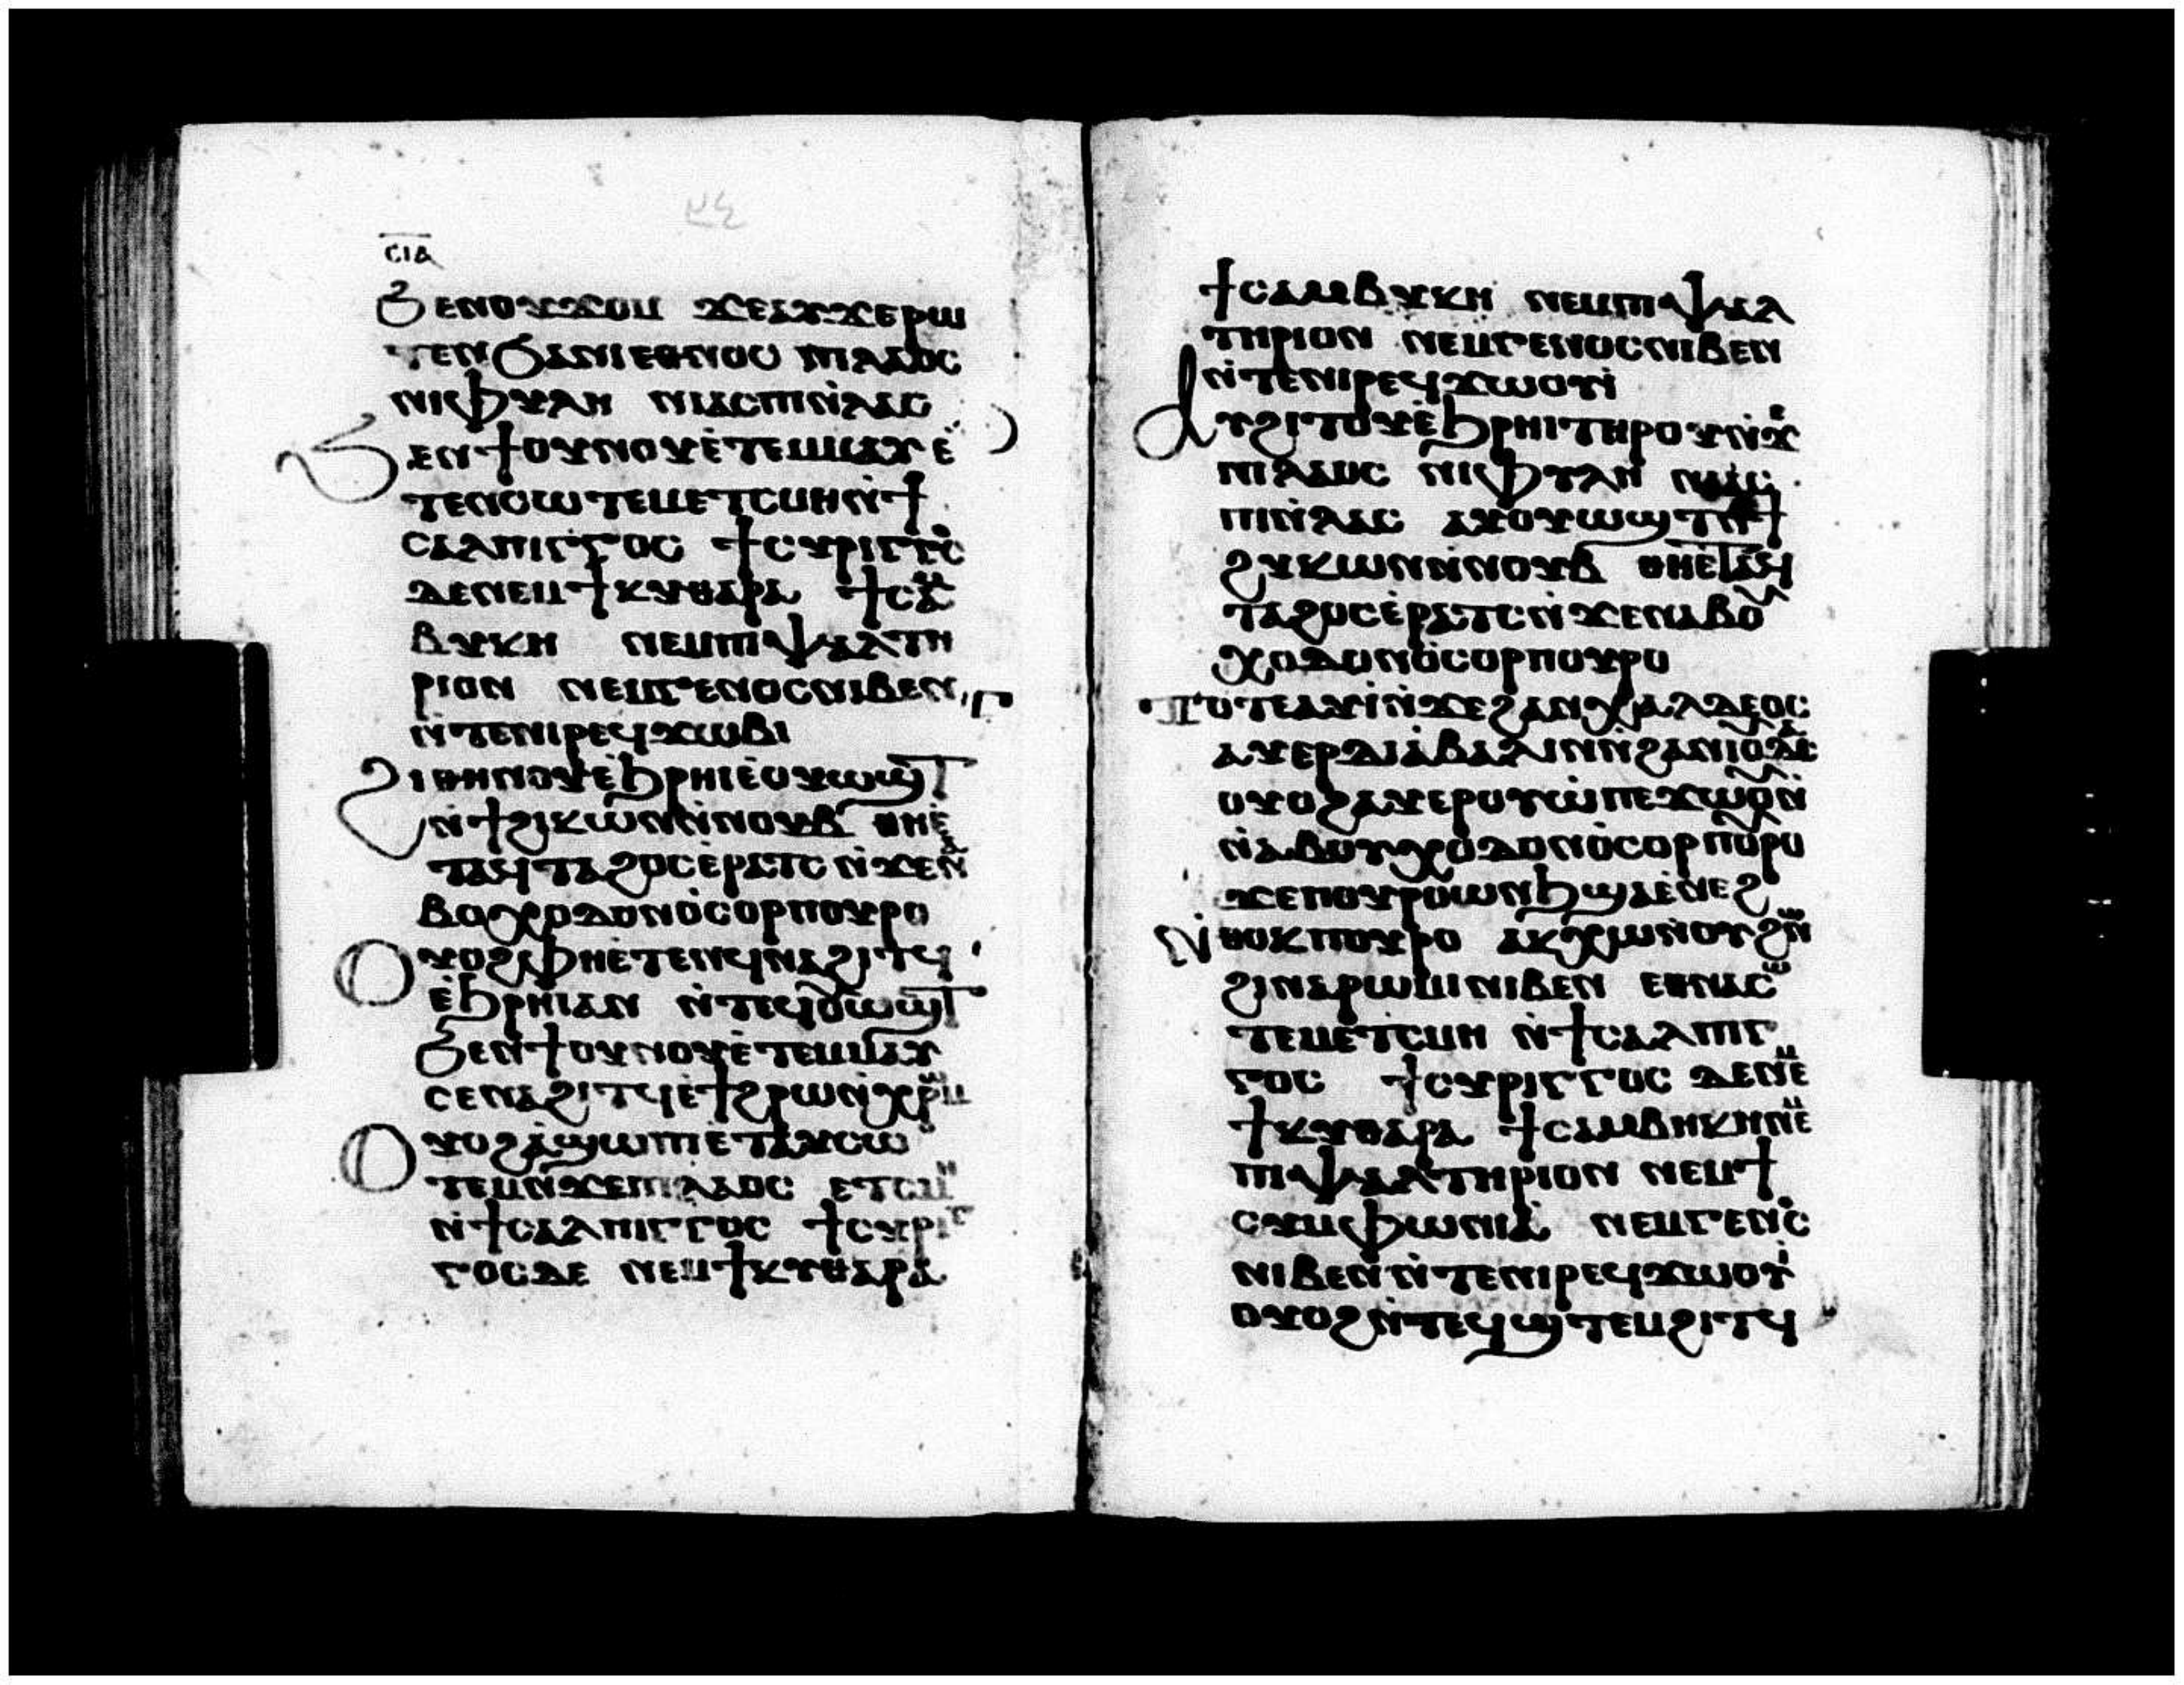 ⲤⲒⲆ
ϦⲈⲚⲞⲨϪⲞⲘ ϪⲈⲀⲨϪⲈⲢⲰ
ⲦⲈⲚϨⲀⲚⲒⲈⲐⲚⲞⲤ ⲚⲒⲖⲀⲞⲤ
ⲚⲒⲪⲨⲖⲎ ⲚⲒⲀⲤⲠⲒⲚ̀ⲖⲀⲤ
ϦⲈⲚϮⲞⲨⲚⲞⲨⲈ̀ⲦⲈⲘⲘⲀⲨ Ⲉ̀
ⲦⲈⲚⲤⲰⲦⲈⲘⲈⲦⲤⲘⲎⲚ̀Ϯ
ⲤⲀⲖⲠⲒⲄⲄⲞⲤ ϮⲤⲨⲢⲒⲄⲄⲞⲤ
ⲆⲈⲚⲈⲘϮⲔⲨⲐⲀⲢⲀ ϮⲤⲀⲘ
ⲂⲨⲔⲎ ⲚⲈⲘⲠⲒⲮⲀⲖⲦⲎ
ⲢⲒⲞⲚ ⲚⲈⲘⲄⲈⲚⲞⲤⲚⲒⲂⲈⲚ
Ⲛ̀ⲦⲈⲚⲒⲢⲈϤϪⲰⲂⲒ
ϨⲒⲐⲎⲚⲞⲨⲈ̀ϦⲢⲎⲒⲈ̀ⲞⲨⲰϢⲦ
Ⲛ̀ϮϨⲒⲔⲰⲚⲚ̀ⲚⲞⲨⲂ ⲐⲎⲈ̀
ⲦⲀϤⲦⲀϨⲞⲤⲈ̀ⲢⲀⲦⲤ Ⲛ̀ϪⲈⲚⲀ
ⲂⲞⲬⲞⲆⲞⲚⲞ̀ⲤⲞⲢⲠⲞⲨⲢⲞ
ⲞⲨⲞϨⲪⲎⲈ̀ⲦⲈⲚϤⲚⲀϨⲒⲦϤ
Ⲉ̀ϦⲢⲎⲒⲀⲚ Ⲛ̀ⲦⲈϤⲞⲨⲰϢⲦ
ϦⲈⲚϮⲞⲨⲚⲞⲨⲈ̀ⲦⲈⲘⲘⲀⲨ
ⲤⲈⲚⲀϨⲒⲦϤⲈ̀ϮϨⲢⲰⲚ̀ⲬⲢⲰⲘ
ⲞⲨⲞϨⲀ̀ϢⲰⲠⲒⲈ̀ⲦⲀⲨⲤⲰ
ⲦⲈⲘⲚ̀ϪⲈⲠⲒⲖⲀⲞⲤ ⲈⲦⲤⲘⲎ
Ⲛ̀ϮⲤⲀⲖⲠⲒⲄⲄⲞⲤ ϮⲤⲨⲢⲒⲄ
ⲄⲞⲤⲆⲈ ⲚⲈⲘϮⲔⲨⲐⲀⲢⲀ
ϮⲤⲀⲘⲂⲨⲔⲎ ⲚⲈⲘⲠⲒⲮⲀⲖ
ⲦⲎⲢⲒⲞⲚ ⲚⲈⲘⲄⲈⲚⲞⲤⲚⲒⲂⲈⲚ
Ⲛ̀ⲦⲈⲚⲒⲢⲈϤϪⲰⲞⲨⲒ̀
ⲀⲨϨⲒⲦⲞⲨⲈ̀ϦⲢⲎⲒⲦⲎⲢⲞⲨⲚ̀ϪⲈ
ⲚⲒⲖⲀⲞⲤ ⲚⲒⲪⲨⲖⲎ ⲚⲒⲀⲤ
ⲠⲒⲚ̀ⲖⲀⲤ ⲀⲨⲞⲨⲰϢⲦⲚ̀Ϯ
ϨⲨⲔⲰⲚⲚ̀ⲚⲞⲨⲂ ⲐⲎⲈ̀ⲦⲀϤ
ⲦⲀϨⲞⲤⲈ̀ⲢⲀⲦⲤⲚ̀ϪⲈⲚⲀⲂⲞⲨ
ⲬⲞⲆⲞⲚⲞ̀ⲤⲞⲢⲠⲞⲨⲢⲞ
ⲦⲞⲦⲈⲀⲨⲒ̀Ⲛ̀ϪⲈϨⲀⲚⲬⲀⲖⲆⲈⲞⲤ
ⲀⲨⲈⲢⲆⲒⲀ̀ⲂⲀⲖⲒⲚⲚ̀ϨⲀⲚⲒⲞⲨⲆⲈ
ⲞⲨⲞϨⲀⲨⲈⲢⲞⲨⲰ̀ⲠⲈϪⲰⲞⲨⲚ̀
Ⲛ̀ⲀⲂⲞⲨⲬⲞⲆⲞⲚⲞ̀ⲤⲞⲢⲠⲞⲨⲢⲞ
ϪⲈⲠⲞⲨⲢⲞⲰⲚϦϢⲀⲈ̀ⲚⲈϨ
Ⲛ̀ⲐⲞⲔⲠⲞⲨⲢⲞ ⲀⲔⲬⲰⲚ̀ⲞⲨϨⲰⲚ
ϨⲒⲚⲀⲢⲰⲘⲒⲚⲒⲂⲈⲚ ⲈⲐⲚⲀⲤⲰ
ⲦⲈⲘⲈ̀ⲦⲤⲘⲎ Ⲛ̀ϮⲤⲀⲖⲠⲒⲄ
ⲄⲞⲤ ϮⲤⲨⲢⲒⲄⲄⲞⲤ ⲆⲈⲚⲈⲘ
ϮⲔⲨⲐⲀⲢⲀ ϮⲤⲀⲘⲂⲎⲔⲎⲚⲈⲘ
ⲠⲒⲮⲀⲖⲦⲎⲢⲒⲞⲚ ⲚⲈⲘϮ
ⲤⲨⲘⲪⲰⲚⲒⲀ̀ ⲚⲈⲘⲄⲈⲚⲞⲤ
ⲚⲒⲂⲈⲚⲚ̀ⲦⲈⲚⲒⲢⲈϤϪⲰⲞⲨⲒ
ⲞⲨⲞϨⲚ̀ⲦⲈϤϢⲦⲈⲘϨⲒⲦϤ